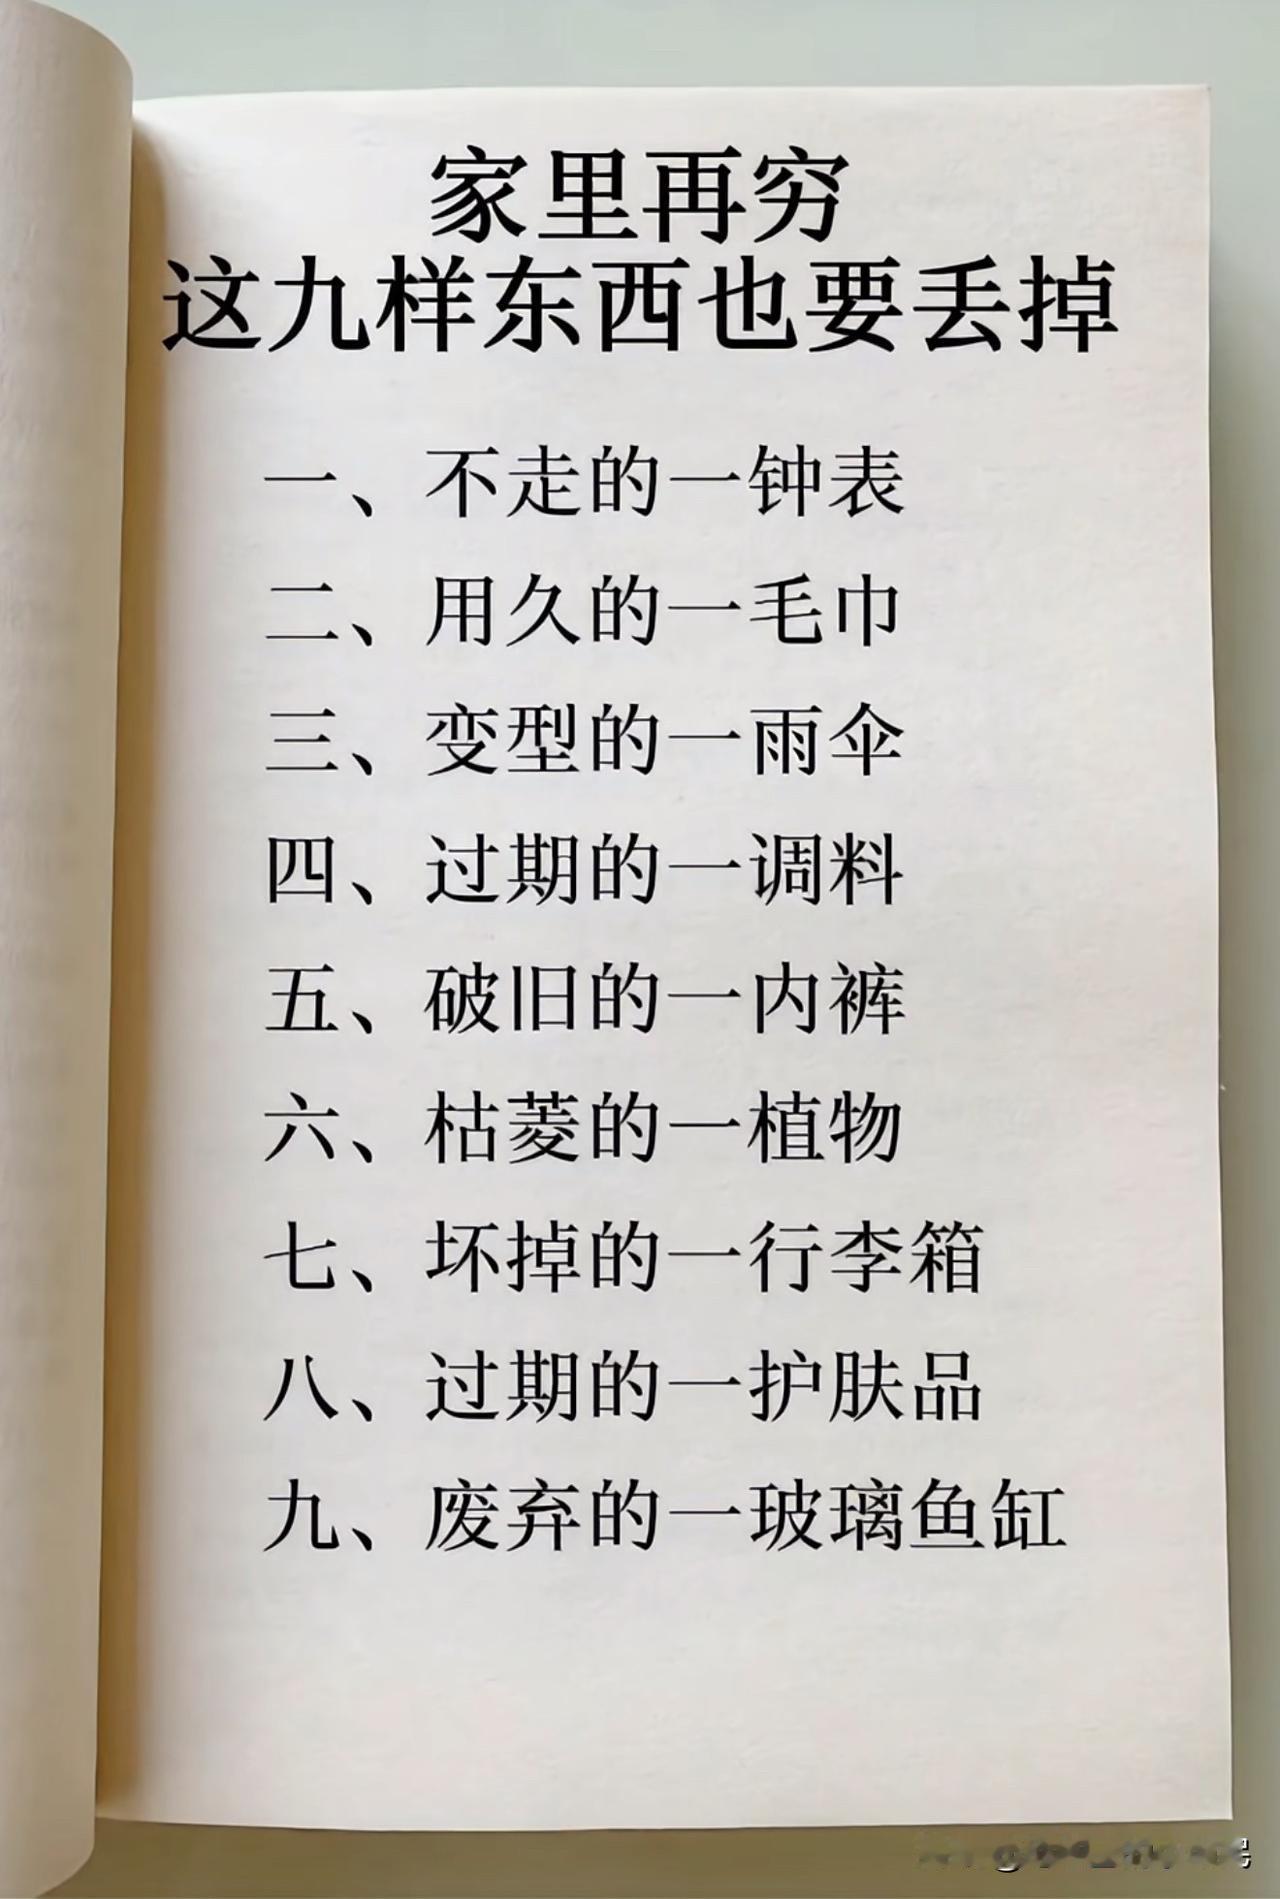 家里再穷
这九样东西也要丢掉
一、不走的一钟表
二、用久的一毛巾
三、变型的一雨伞
四、过期的一调料
五、破旧的一内裤
六、枯菱的一植物
七、坏掉的一行李箱
八、过期的一护肤品
九、废弃的一玻璃鱼缸